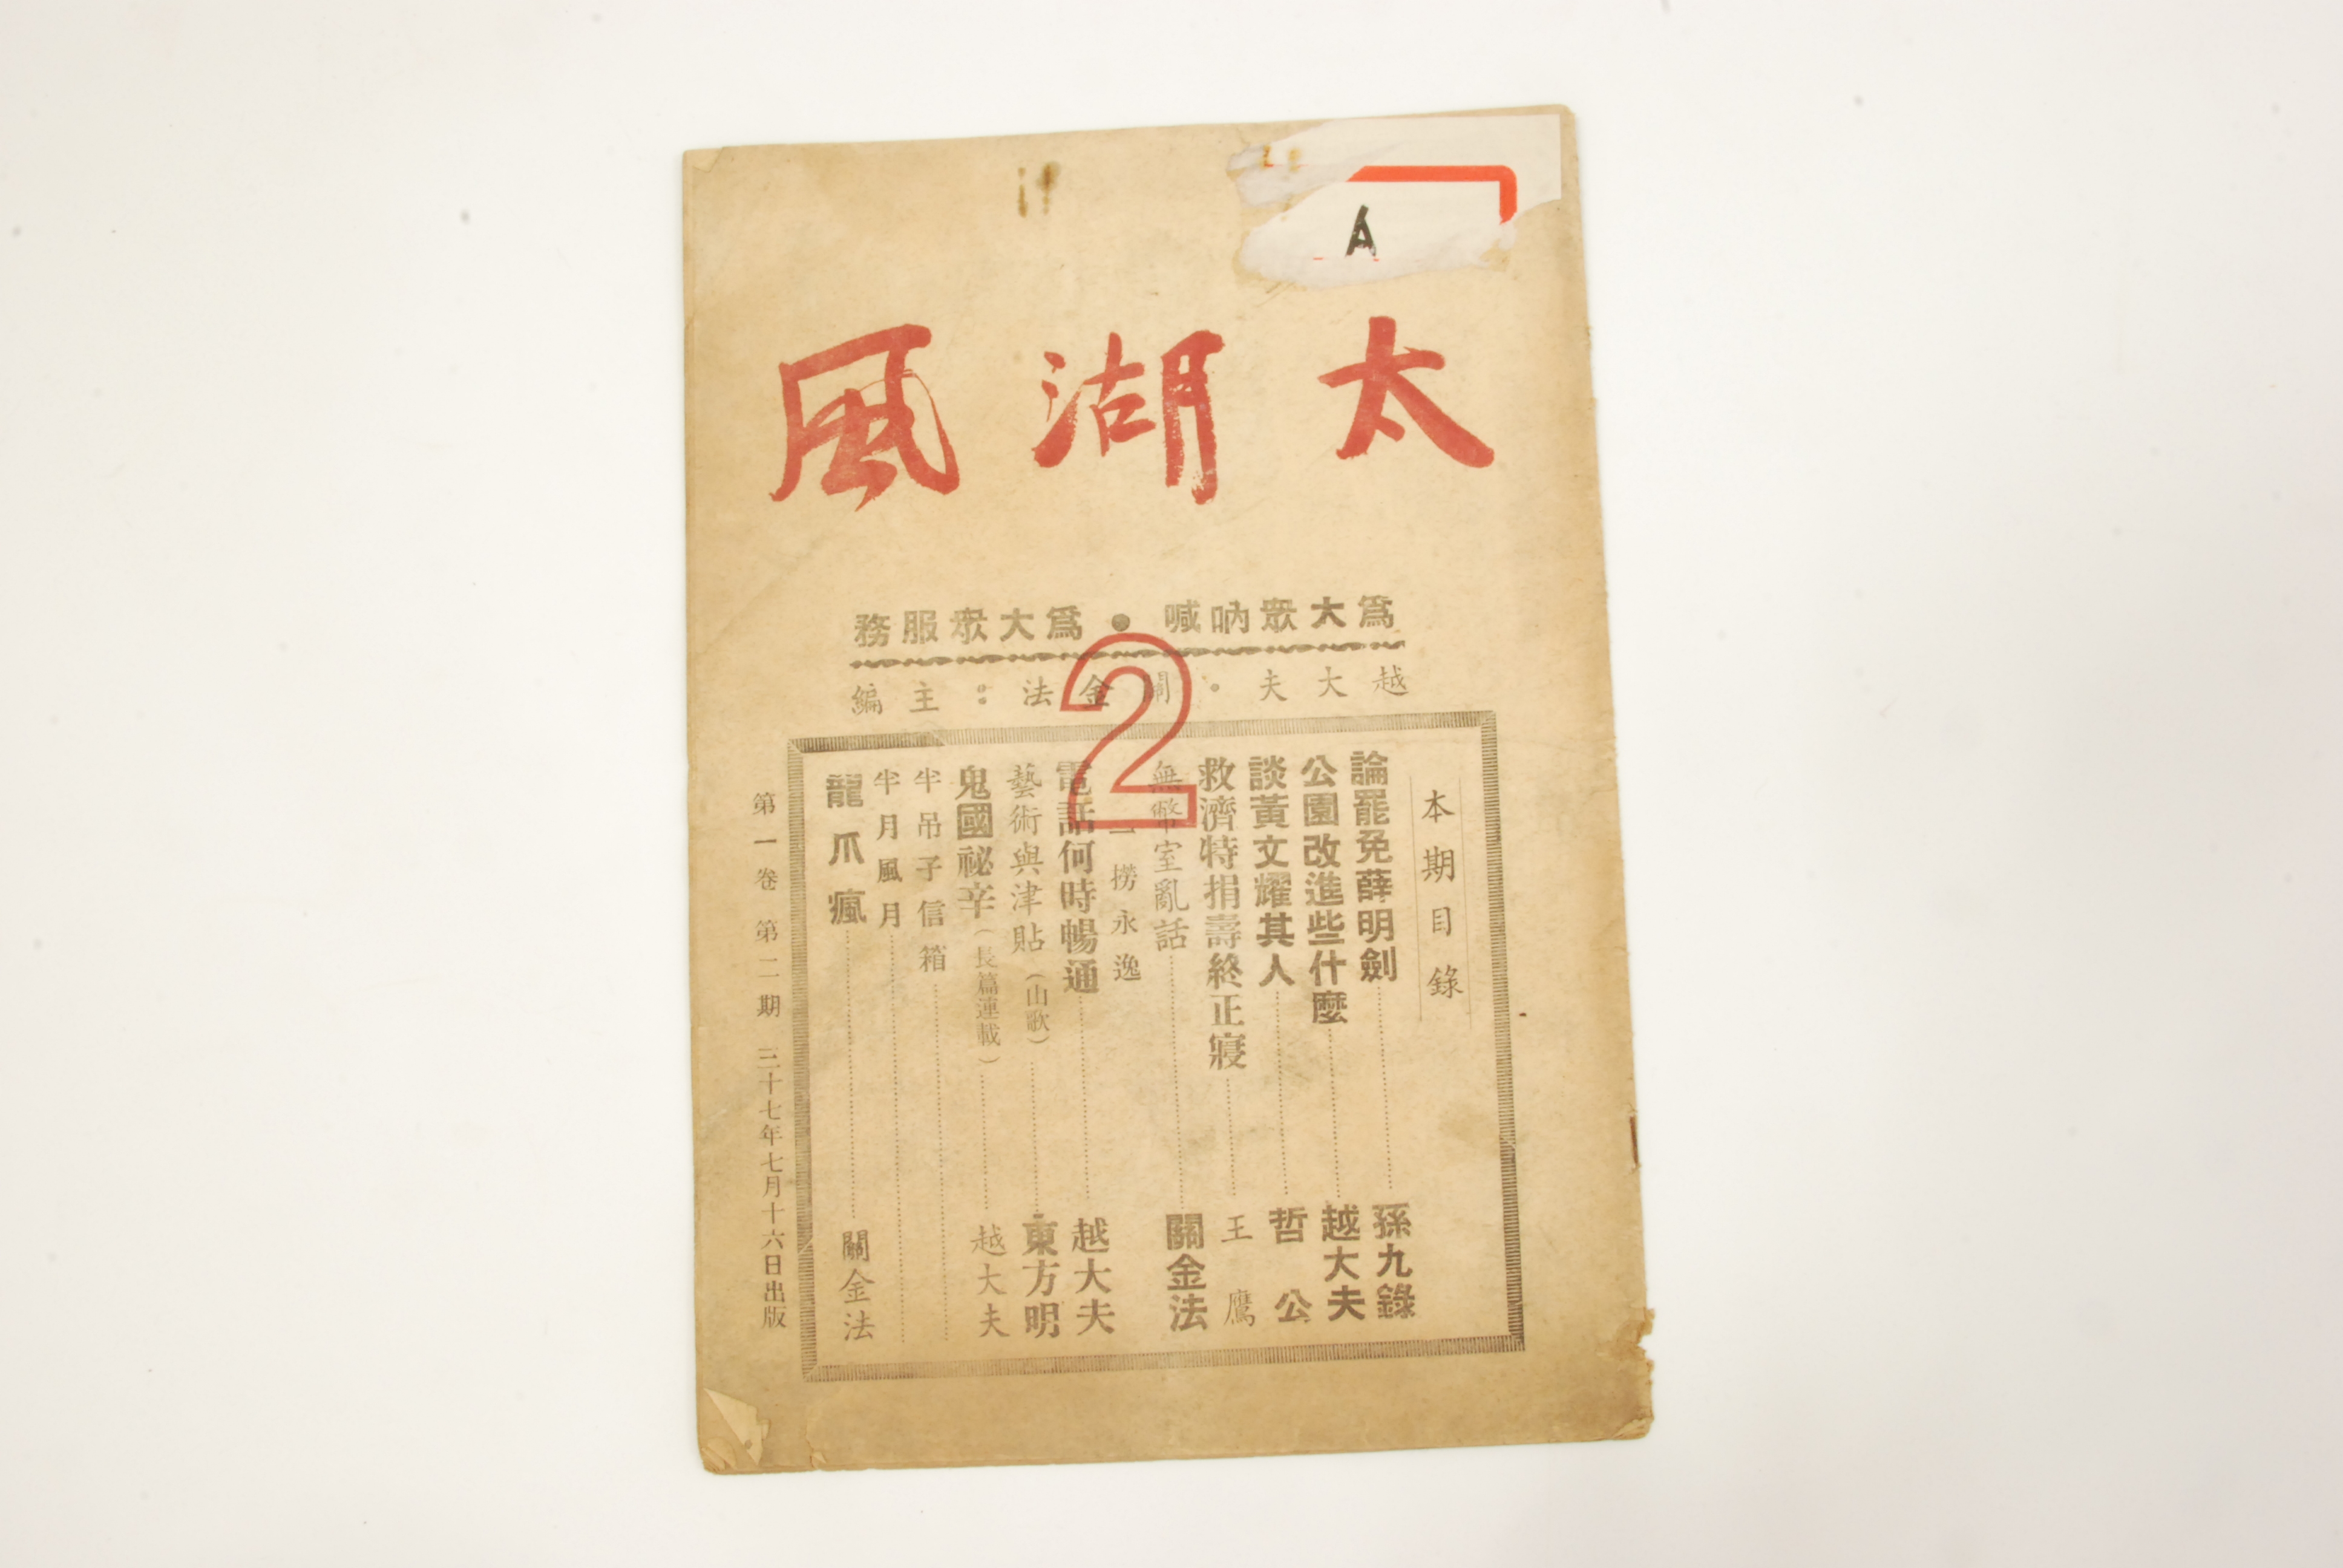 A
太湖風
為大眾吶喊●為大眾服務
越大夫·關金法：主編
2
本期目錄
論罷免薛明劍……孫九錄
公園改進些什麼……越大夫
談黃文耀其人……哲公
救濟特捐壽終正寢……王鷹
無幣室亂話……關金法
一撈永逸
電話何時暢通……越大夫
藝術與津貼（山歌）……東方明
鬼國祕辛（長篇連載）……越大夫
半吊子信箱……
半月風月……
龍爪瘋……關金法
第一卷 第二期 三十七年七月十六日出版